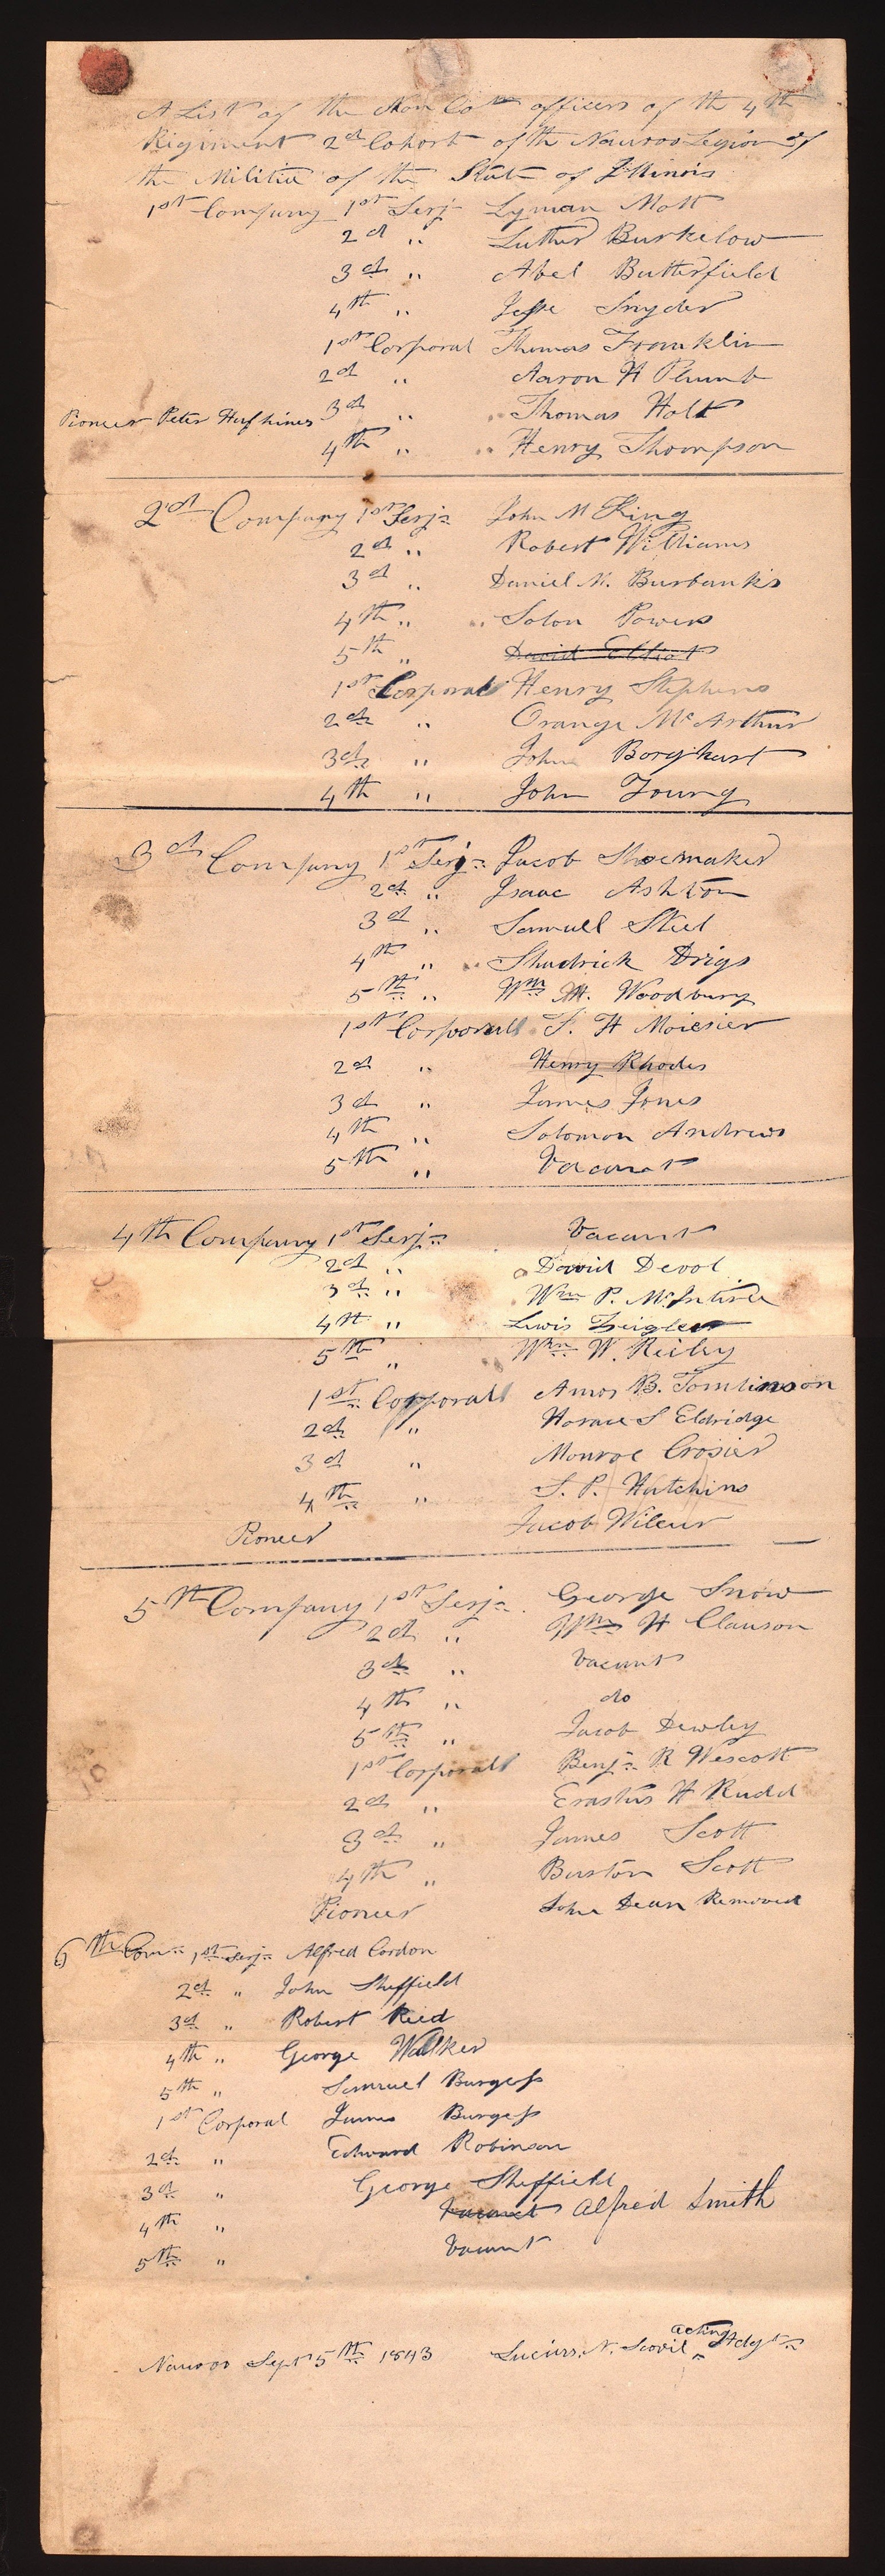 A List of the Non Com officers of the 4th
Rigiment 2d Cohort of the Nauvoo Legion of
the Militia of the State of Illinois
1st Company 1st Serj Lyman Mott
2d " Luther Burkelow
3d " Abel Butterfield
4th " Jesse Snyder
1st Corporal Thomas Franklin
2d " Aaron H Plumb
Pioneer Peter Hufhines 3d " Thomas Holt
4th " Henry Thompson
2d Company 1st Serj John M King
2d " Robert Williams
3d " Daniel M. Burbanks
4th " Solon Powers
5th " David Elliot
1st Corporal Henry Stephens
2d " Orange McArthur
3d " John Borghart
4th " John Young
3d Company 1st Serj Jacob Shoemaker
2d " Isaac Ashton
3d " Samuell Steel
4th " Shadrick Drigs
5th " Wm M. Woodbury
1st Corporall S. H Moiesier
2d " Henry Rhodes
3d " James Jones
4th " Solomon Andrews
5th " Vacant
4th Company 1st Serj Vacant
2d " David Devol
3d " Wm P. McIntire
4th " Lewis Zeigler
5th " Wm W. Reiley
1st Corporall Amos B. Tomlinson
2d " Horace S Eldridge
3d " Monroe Crosier
4th " S. P. Hutchins
Pioneer Jacob Wilcur
5th Company 1st Serj George Snow
2d " Wm H Clauson
3d " Vacant
4th " do
5th " Jacob Dewley
1st Corporall Benj R Wescott
2d " Erastus H Rudd
3d " James Scott
4th " Burton Scott
Pioneer John Dean Removed
6th Com 1st Serj Alfred Cordon
2d " John Sheffield
3d " Robert Reed
4th " George Walker
5th " Samuel Burgess
1st Corporal James Burgess
2d " Edward Robinson
3d " George Sheffield
4th " Vacant Alfred Smith
5th " Vacant
Nauvoo Sept 5th 1843 Lucius. N. Scovil acting Adgt